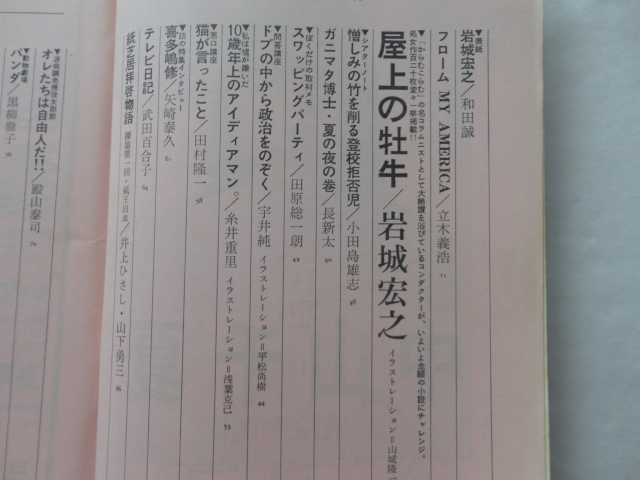 ▼表紙
岩城宏之／和田誠
フローム MY AMERICA／立木義浩
▼「からむこらむ」の名コラムニストとして大絶讃を浴びているコンダクターが、いよいよ念願の小説にチャレンジ。
処女作百二十枚堂々一挙掲載!!
屋上の牡牛／岩城宏之 イラストレーション＝山城隆一
▼シアターノート
憎しみの竹を削る登校拒否児／小田島雄志 38
ガニマタ博士・夏の夜の巻／長新太 40
▼ぼくだけの取材メモ
スワッピングパーティ／田原総一朗 42
▼問答講座
ドブの中から政治をのぞく／宇井純 イラストレーション＝平松尚樹 44
▼私は嘘が嫌いだ
10歳年上のアイディアマン。／糸井重里 イラストレーション＝浅葉克己 53
▼悪口講座
猫が言ったこと／田村隆一 58
▼話の特集インタビュー
喜多嶋修／矢崎泰久 60
テレビ日記／武田百合子 64
紙芝居拝啓物語 ／井上ひさし・山下勇三 66
オレたちは自由人だ!!／殿山泰司 74
▼動物劇場
パンダ／黒柳徹子